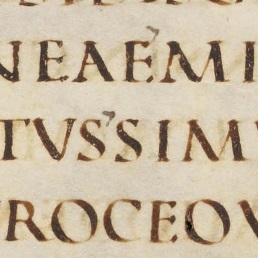 NEAEMI
TUSSIMU
UROCEOU